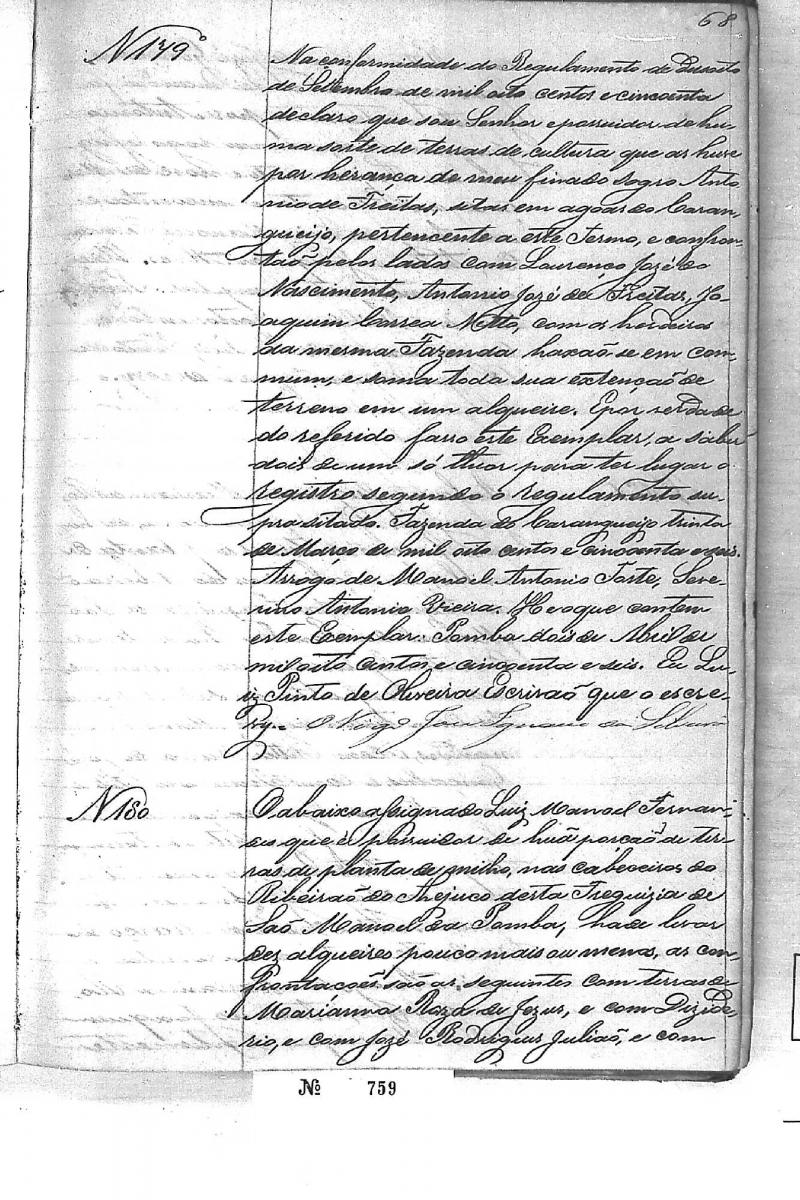 68
N 179
Na conformidade do Regulamento de Desoito
de Settembro de mil oito centos e cincoenta
declaro que sou Senhor e possuidor de hu-
ma sorte de terras de cultura que as huve
por herança de meu finado sogro Anto
nio de Freitas, sitas em agoas do Caran,
gueijo, pertencente a este Termo, e confron-
taõ pelos lados com Lourenco José do
Nascimento, Antonio José de Freitas, Jo-
aquim Correa Netto, com os herdeiros
da mesma Fazenda haxaõ se em com-
mum, e soma toda sua extenção de
terreno em um alqueire. E por ser verdade
do referido fasso este Exemplar, a saber
dois de um só theor para ter lugar o
registro segundo o regulamento su-
pra sitado. Fazenda do Carangueijo trinta
de Março de mil oito centos e cincoenta e seis.
Arrogo de Manoel Antonio Forte, Seve-
rino Antonio Vieira. He o que contem
este Exemplar. Pomba dois de Abril de
mil oito centos e cincoenta e seis. Eu Lu-
iz Pinto de Oliveira Escrivaõ que o escre-
vy. O Vigº José Ignacio da
N 180
O abaixo assignado Luiz Manoel Fernan-
des que é possuidor de huã porcaõ de ter
ras de planta de milho, nas cabeceiras do
Ribeiraõ do Thejuco desta Freguizia de
Saõ Manoel da Pomba, hade levar
des alqueires pouco mais ou menos, as con-
frontacões são as seguintes com terras de
Marianna Roza de Jezus, e com Dizide-
rio, e com José Rodrigues Juliaõ, e com
Nº 759